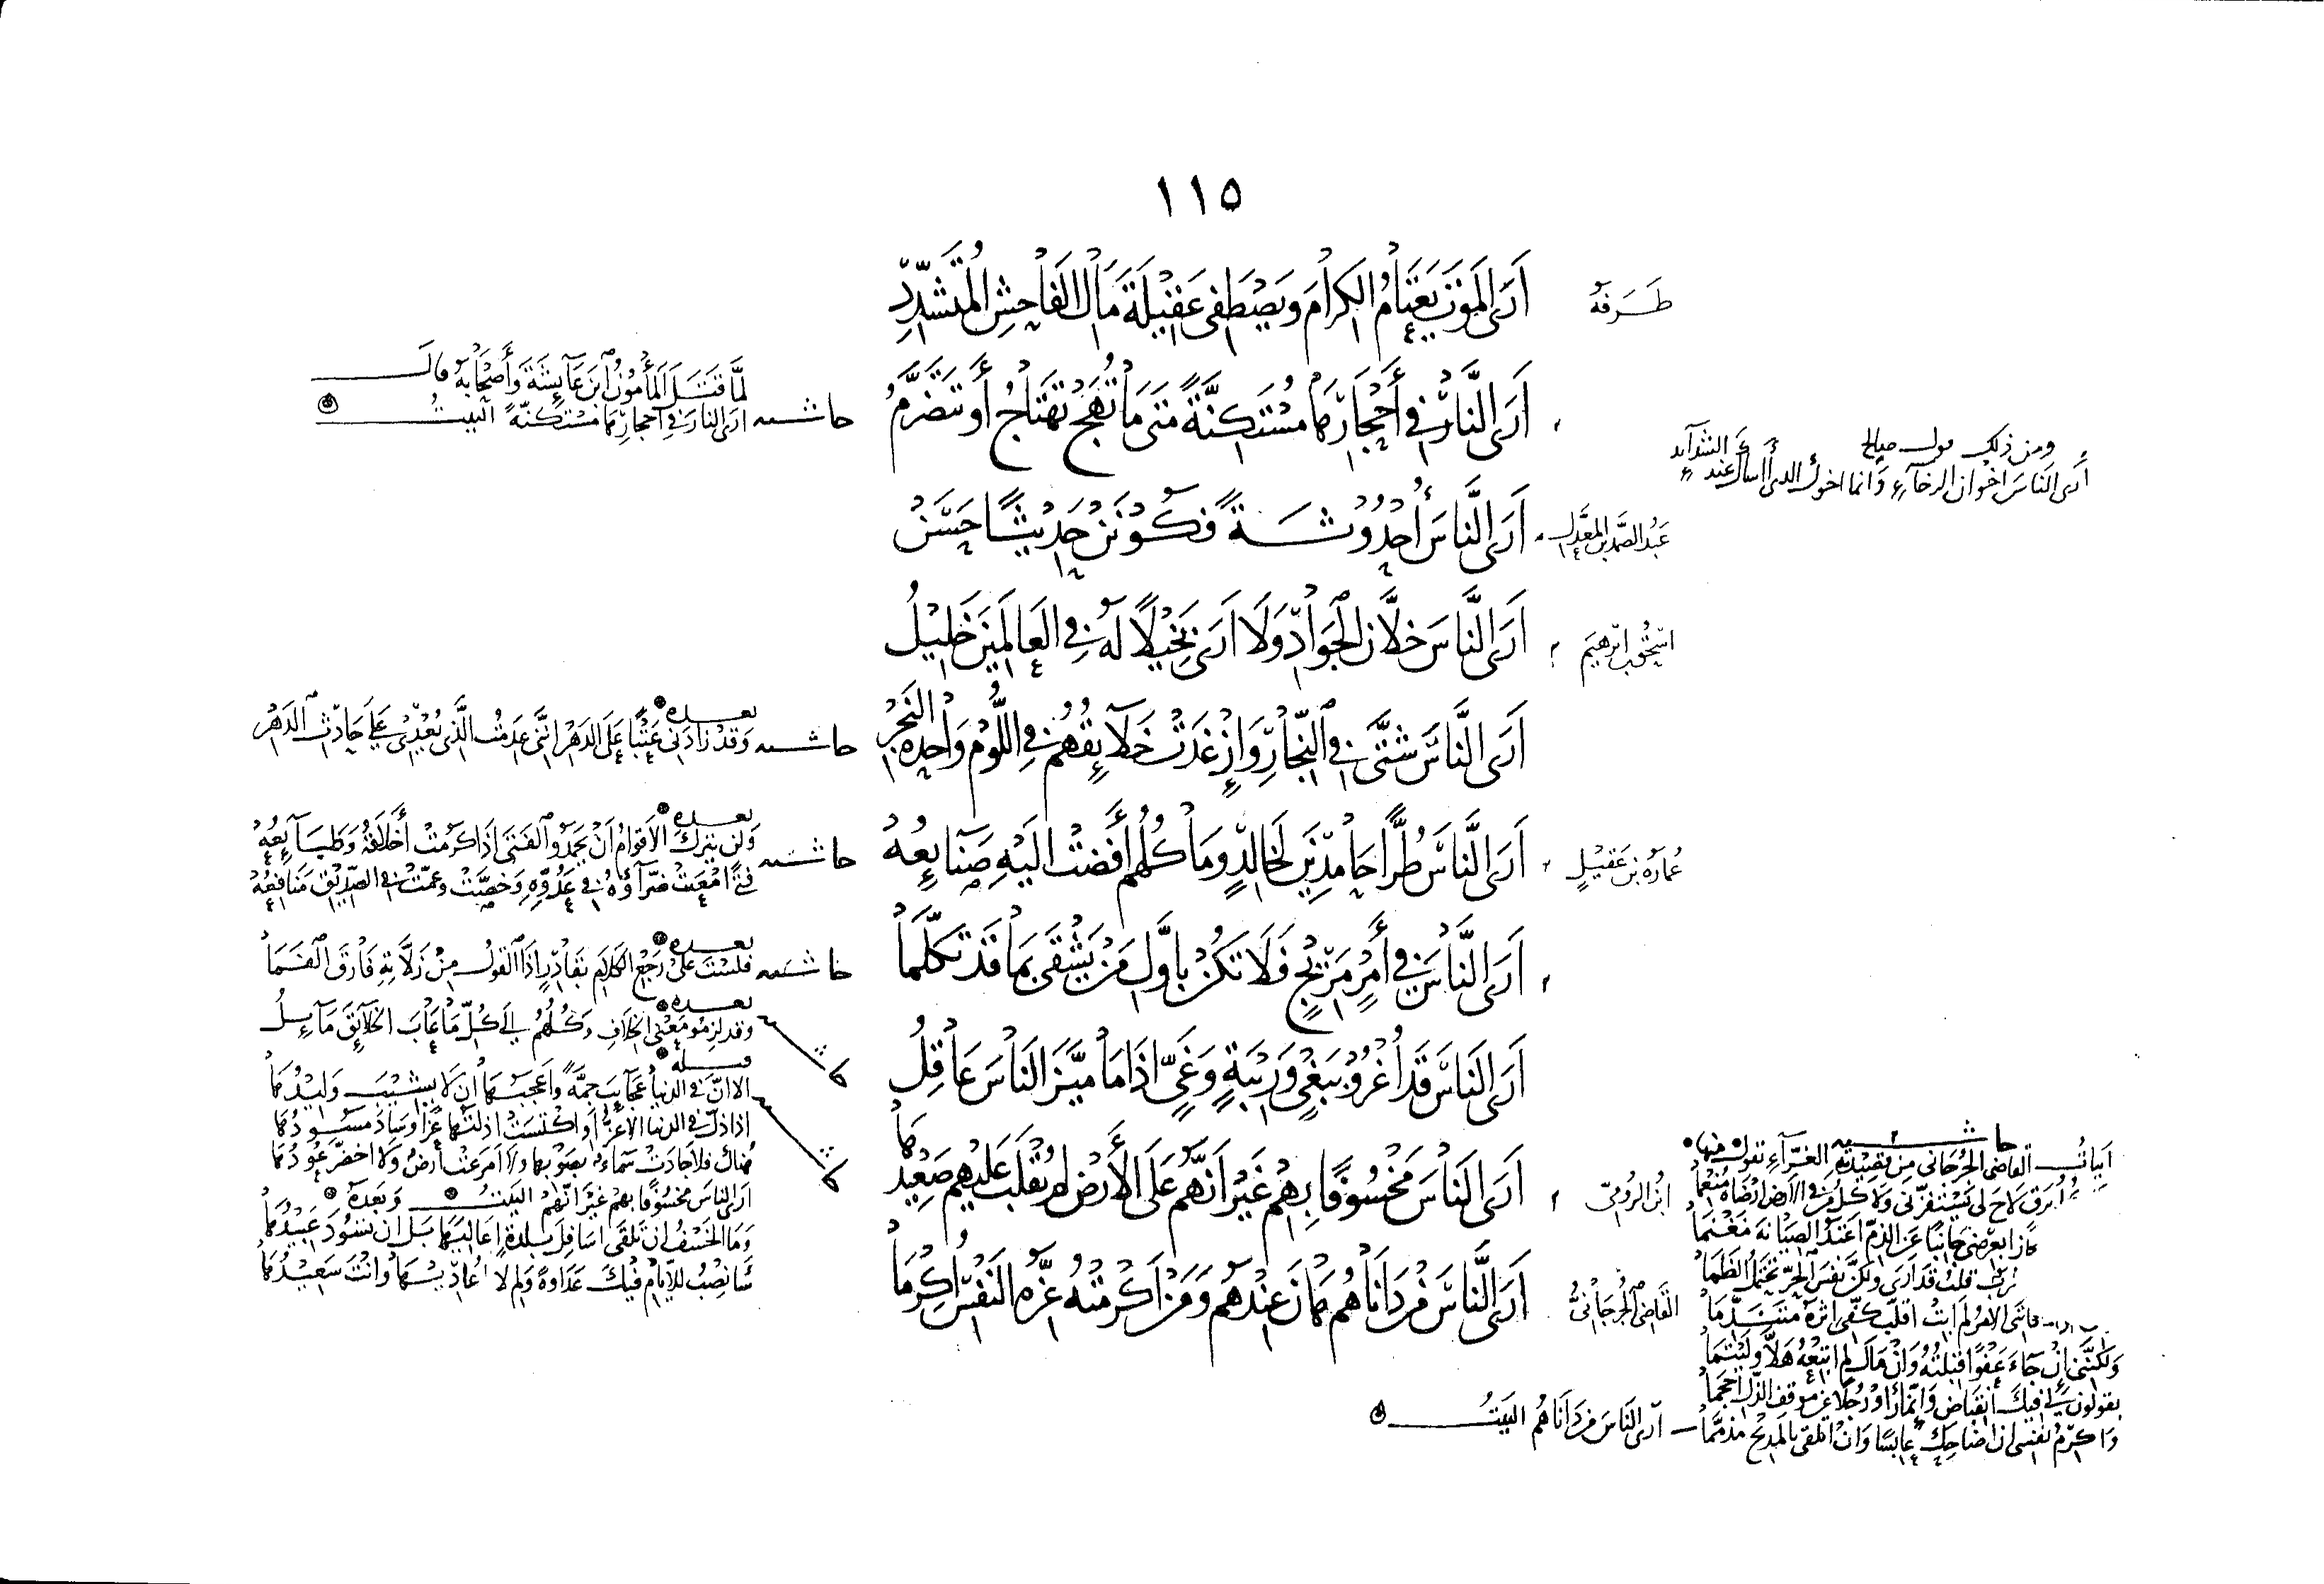 ١١٥
طَرَفة
أَرَى المَوتَ يَعتَامُ الكِرَامَ وَيَصطَفِى عَقِيلَةَ مَالِ الفَاحِشِ المُتَشَدِّدِ
أَرَى النَّارَ فِى أَحجَارِهَا مُستَكِنَّةً مَتَى مَا تُهَج تَهتَاجُ أَو تَتَضَرَّمُ
حاشيه
لَمَّا قَتَلَ المَأمُونُ ابنَ عَآئِشَةَ وَأَصحَابَهُ قَالَ
ارَى النارَ فِى احجَارِهَا مُستَكنَّةً البيتُ
ومن ذلك قول صالح
أرى الناسَ اخوان الرخآءِ وَانما اخوك الذى آساك عند الشدآئد
عَبدُ الصَّمَد بن المُعَذَّل
أَرَى النَّاسَ أُحدُوثَةً فَكُونَن حَدِيثًا حَسَن
اسحٰق بن ابرهيم
أَرَى النَّاسَ خلَّانَ الجَوَادِ وَلَا ارَى بَخِيلًا لَهُ فِى العَالَمِينَ خَلِيلُ
أَرَى النَّاسَ شَتَّى فِى النِّجَارِ وَإِن غَدَت خَلَآئِقُهُم فِى اللُّؤمِ وَاحِدَةَ النَّجرِ
حاشيه
بعده
وَقَد زَادَنِى عَتبًا عَلَى الدَهرِ انَّنِى عَدِمتُ الَّذِى يُعدِى عَلَى حَادِثِ الدَهرِ
عُمَارَة بن عَقِيلٍ
أَرَى النَّاسَ طُرًّا حَامِدِينَ لخَالِدٍ وَمَا كُلُّهُم أَفضَت الَيهِ صَنَآيِعُه
حاشيه
بعده
وَلَن يَترُكَ الأَقوَامُ أَن يَحمَدُوا الفَتَى اذَا كَرُمَت أَخلَاقُهُ وَطَبَآيِعُه
فتًى امعَنَت ضَرَّآؤهُ فِى عَدُوِّهِ وَخَصَّت وَعَمَّت فِى الصَدِيقِ مَنَافِعُه
أَرَى النَّاسَ فِى أَمرٍ مَرِيجٍ فَلَا تَكُن بِاوَّلِ مَن يَشقَى بِمَا قَد تَكَلَّمَا
حاشيه
بعده
فلستَ عَلَى رَجعِ الكَلَامِ بقَادِرٍ اذَا القَولُ مِن زَلَّاتِهِ فَارَقَ الفَمَا
أَرَى النَاسَ قَد أُغرُوا بِبَغىٍ وَرِيبَةٍ وَغَىٍّ اذَا مَا مَيَّزَ النَاسَ عَاقِلُ
بعده
وقد لزمُوا مَعنى الخلَافِ وَكُلُّهُم الَى كُلِّ مَا عَابَ الخَلَآئِقَ مَآئِلُ
ابن الرُومِىّ
أَرَى النَاسَ مَخسُوفًا بِهِم غَيرَ انَّهُم عَلَى الأَرضِ لَم يُقلَب عَلَيهِم صَعِيدُهَا
قبله
الا انَّ فى الدنيا عَجَآيِبَ جَمَّةً وَاعجَبُهَا ان لَا يَشِيبَ وَلِيدُهَا
اذا ذلَّ فى الدنيا الاعزَّاءُ وَاكتَسَت اذِلَّتُهَا عِزًّا وَسَادَ مَسُودُهَا
هُنَاك فلَا جَادَت سَمَاءٌ بصَوبِهَا وَلَا امرَعَت ارضٌ وَلَا اخضَرَّ عُودُهَا
ارَى الناسَ مخسُوفًا بِهم غَيرَ انَّهُم البَيتُ وَبَعدَهُ
وَمَا الخَسفُ ان تَلقَى اسَافِلَ بَلدَةٍ اعَالِيَهَا بَل ان تسُودَ عَبِيدُهَا
سَأنصِبُ للأَيَّامِ فِيكَ عَدَاوَةً وَلِم لا اُعَادِيهَا وَانتَ سَعِيدُهَا
القَاضِى الجُرجَانِىُّ
أَرَى النَّاسَ مَن دَانَاهُم هَانَ عِندَهُم وَمَن أَكرَمَتهُ عِزَّةُ النَفسِ اكرِمَا
حاشيه
ابيَاتُ القاضى الجُرجَانى مِن قَصِيدَتِهِ الغَرَّآءِ يَقول فيها
وما كُلُّ بَرقٍ لاحَ لى يَستَفِزُّنى وَلا كلُّ مَن فى الارضِ ارضَاهُ مُنعِمَا
بعِرضى جَانِبًا عَنِ الذَمِّ اعتَدُّ الصِيَانَةَ مَغنَمَا
قلتُ قد ارَى ولكنَّ نفسَ الحُرِّ تحتَملُ الظَمَا
فَاتَنى الامرُ لَم ابِت اقلِّبُ كفِّى اثرَهُ مُتَنَدِّمَا
وَلكنَّنى إن جَآءَ عَفوًا قَبلتُهُ وَان مَالَ لم اتبِعهُ هَلَّا وَلَيتَمَا
يقولون لى فيكَ انقبَاضٌ وَانَّمَا رَأَوا رَجُلًا عن موقفِ الذُلِّ احجَمَا
وَاكرمُ نفسى ان اضَاحِكَ عابسًا وَان اتلقى بالمَدِيحِ مذمَّمًا — ارى النَاسَ من دَانَاهُم البَيتُ